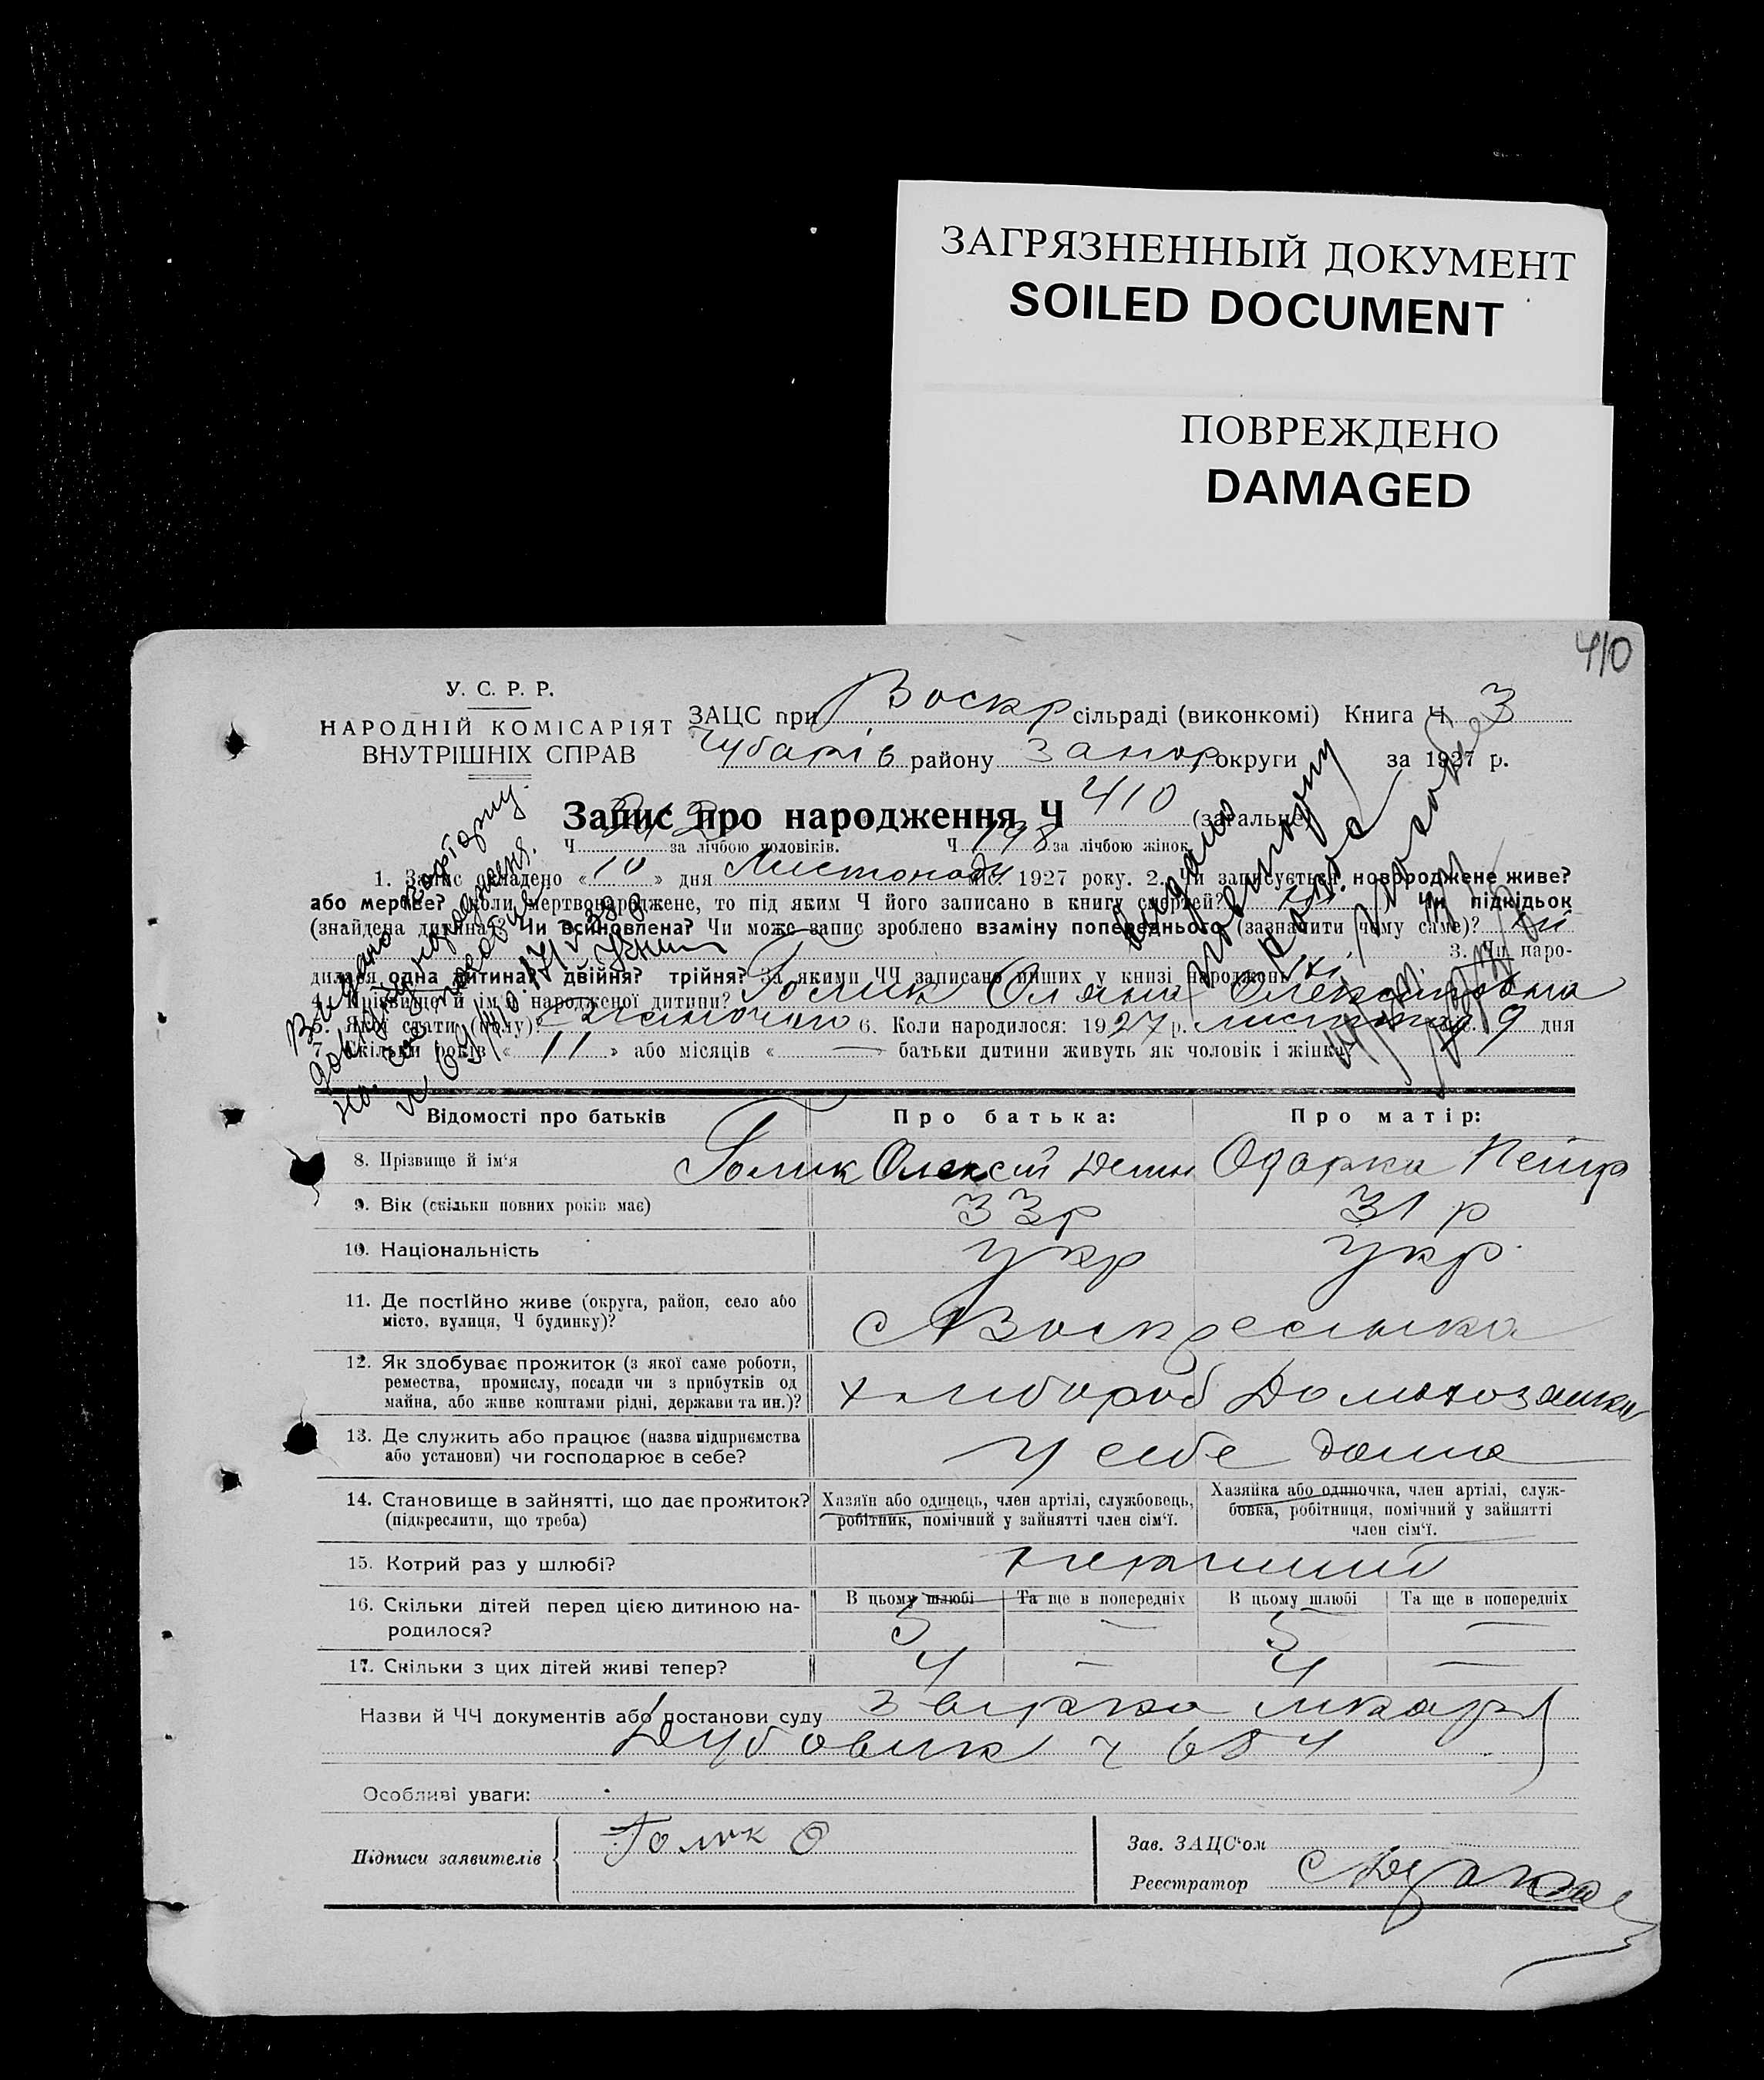 ЗАГРЯЗНЕННЫЙ ДОКУМЕНТ
SOILED DOCUMENT
ПОВРЕЖДЕНО
DAMAGED
410
У. С. Р. Р.
НАРОДНІЙ КОМІСАРІЯТ
ВНУТРІШНІХ СПРАВ
ЗАЦС при Воскр сільраді (виконкомі) Книга Ч. 3
Чубарів району Запор округи за 1927 р.
Запис про народження Ч 410 (загальне)
Ч за лічбою чоловіків. Ч 198 за лічбою жінок.
1. Запис складено « 10 » дня Листопаду міс. 1927 року. 2. Чи записується новороджене живе?
або мертве? Коли мертвонароджене, то під яким Ч його записано в книгу смертей? Чи підкідьок
(знайдена дитина)? Чи всиновлена? Чи може запис зроблено взаміну попереднього (зазначити чому саме)? ні
3. Чи наро-
дилася одна дитина? двійня? трійня? За якими ЧЧ записано инших у книзі народжень
4. Прізвище й ім'я народженої дитини? Голик Оляна Олексієвна
5. Якої стати (полу)? жіночого 6. Коли народилося: 1927 р. листопада 9 дня
Скільки років « 11 » або місяців « — » батьки дитини живуть як чоловік і жінка?
Видано
на
Відомості про батьків
Про батька:
Про матір:
8. Прізвище й ім'я Голик Олексій Демн Одарка Петр
9. Вік (скільки повних років має) 33р 31 р
10. Національність укр укр.
11. Де постійно живе (округа, район, село або
місто, вулиця, Ч будинку)? с Воскресенка
12. Як здобуває прожиток (з якої саме роботи,
ремества, промислу, посади чи з прибутків од
майна, або живе коштами рідні, держави та ин.)? хлібороб Домохозяйка
13. Де служить або працює (назва підприємства
або установи) чи господарює в себе? У себе дома
14. Становище в зайнятті, що дає прожиток?
(підкреслити, що треба)
Хазяїн або одинець, член артілі, службовець,
робітник, помічний у зайнятті член сім'ї.
Хазяйка або одиночка, член артілі, служ-
бовка, робітниця, помічний у зайнятті
член сім'ї.
15. Котрий раз у шлюбі? перший
16. Скільки дітей перед цією дитиною на-
родилося?
В цьому шлюбі Та ще в попередніх В цьому шлюбі Та ще в попередніх
5 — 5 —
17. Скільки з цих дітей живі тепер? 4 — 4 —
Назви й ЧЧ документів або постанови суду
Дубовик ч 684
Особливі уваги:
Підписи заявителів
Голик О
Зав. ЗАЦС'ом
Реєстратор